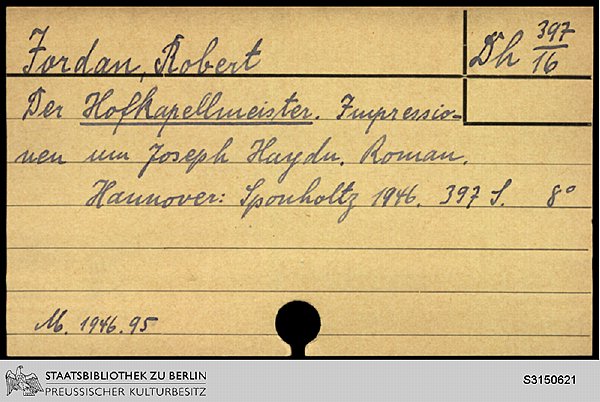 Jordan, Robert
Dh 397
16
Der Hofkapellmeister. Impressio-
nen um Joseph Haydn. Roman.
Hannover: Sponholtz 1946. 397 S. 8°
M. 1946.95
STAATSBIBLIOTHEK ZU BERLIN
PREUSSISCHER KULTURBESITZ
S3150621